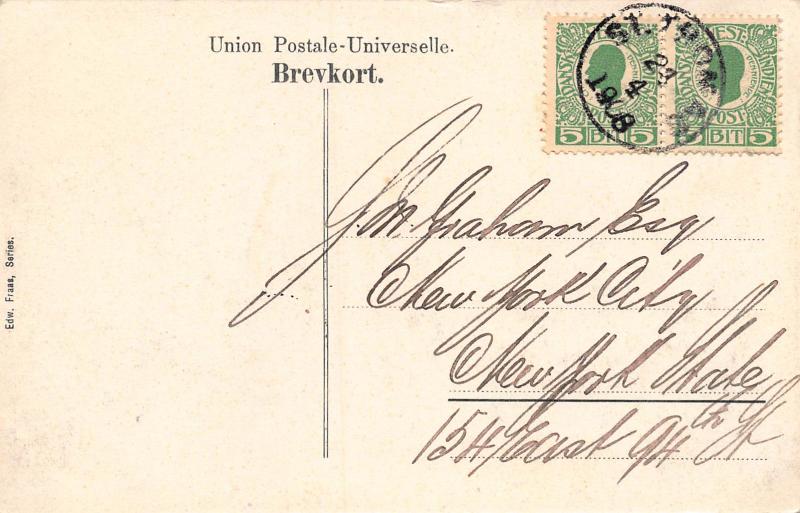 Union Postale-Universelle.
Brevkort.
ST. THOMAS
23
4
1908
DANSK VESTINDIEN
POST
5 BIT 5
DANSK VESTINDIEN
POST
5 BIT 5
J. M. Graham Esq
New York City
New York State
154 East 94th St
Edw. Fraas, Series.